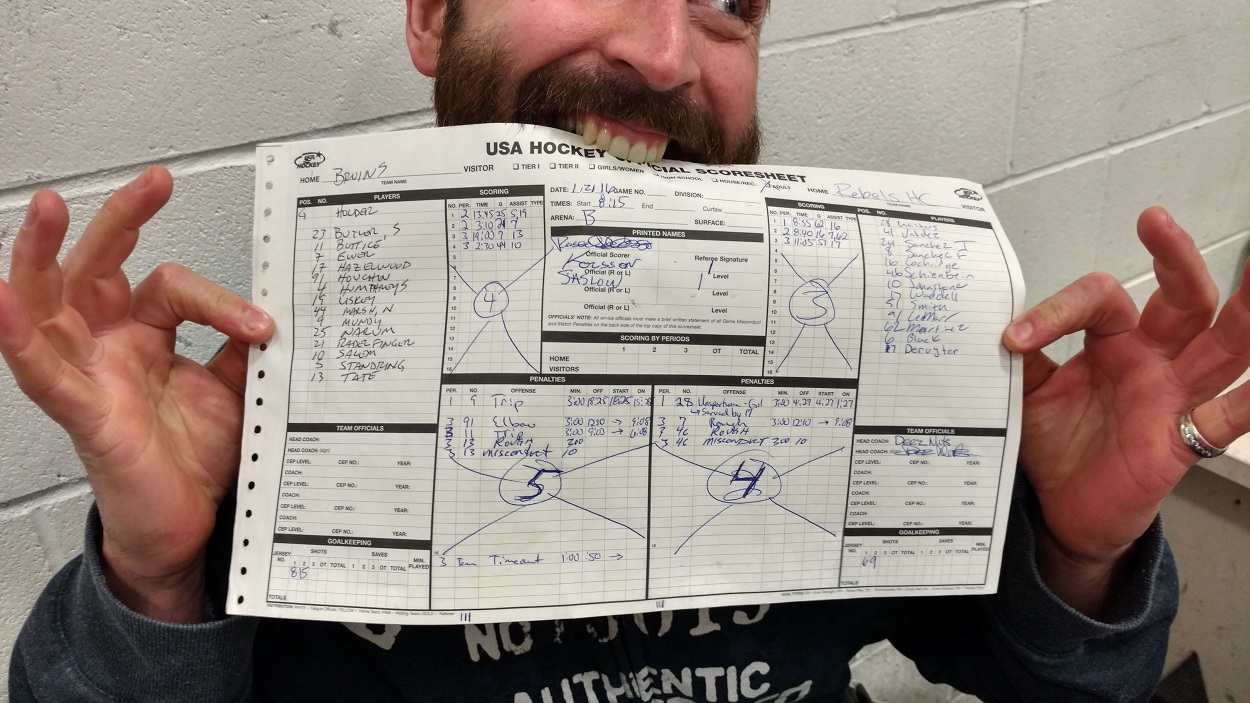 USA HOCKEY OFFICIAL SCORESHEET
HOME BRUINS VISITOR
TEAM NAME
TIER I TIER II GIRLS/WOMEN HIGH SCHOOL HOUSE/REC. ADULT
HOME Rebels HC VISITOR
TEAM NAME
POS. NO. PLAYERS
G HOLDER
23 BUTLER, S
11 BUTTICE
7 EWER
17 HAZELWOOD
91 HOUCHIN
4 HUMPHREYS
19 LISKEY
44 MARSH, N
9 MUNDY
25 NARUM
21 RADELFINGER
10 SALOM
5 STANDRING
13 TATE
SCORING
NO. PER. TIME G ASSIST TYPE
1 2 13:45 25 5,19
2 2 3:10 21 7
3 3 14:00 7 13
4 3 2:30 44 10
4
DATE: GAME NO. DIVISION:
TIMES: Start 8:15 End Curfew
ARENA: B SURFACE:
PRINTED NAMES
Official Scorer Referee Signature
Official (R or L) Level
SASLOW
Official (R or L) Level
Official (R or L) Level
OFFICIALS' NOTE: All on-ice officials must make a brief written statement of all Game Misconduct
and Match Penalties on the back side of the top copy of this scoresheet.
SCORING BY PERIODS
1 2 3 OT TOTAL
HOME
VISITORS
SCORING
NO. PER. TIME G ASSIST TYPE
1 1 8:55 62 16
2 2 8:40 16 7,62
3 3 11:05 51 17
3
POS. NO. PLAYERS
Sanchez J
8 Sanchez F
16 Lockridge
46 Schienbein
10 Johnstone
Waddell
51 Smith
91 LeMarr
62 Martinez
6 Black
17 Deruyter
PENALTIES
PER. NO. OFFENSE MIN. OFF START ON
1 9 Trip 3:00
3 91 Elbow 3:00 12:10 → 9:08
3 11 Trip 3:00 9:00 → 6:08
3 13 ROUGH 300
3 13 misconduct 10
5
3 Team Timeout 1:00 :50 →
PENALTIES
PER. NO. OFFENSE MIN. OFF START ON
1 28 3:00 4:27 4:27 1:27
↳ served by 17
3 7 Rough 3:00 12:10 → 9:08
3 46 ROUGH
3 46 misconduct 300 10
4
TEAM OFFICIALS
HEAD COACH:
HEAD COACH: (sign)
CEP LEVEL: CEP NO.: YEAR:
COACH:
CEP LEVEL: CEP NO.: YEAR:
COACH:
CEP LEVEL: CEP NO.: YEAR:
COACH:
CEP LEVEL: CEP NO.: YEAR:
GOALKEEPING
JERSEY NO. SHOTS SAVES MIN. PLAYED
1 2 3 OT TOTAL 1 2 3 OT TOTAL
815
TOTALS
TEAM OFFICIALS
HEAD COACH: Deez Nuts
HEAD COACH: (sign)
CEP LEVEL: CEP NO.: YEAR:
COACH:
CEP LEVEL: CEP NO.: YEAR:
COACH:
CEP LEVEL: CEP NO.: YEAR:
COACH:
CEP LEVEL: CEP NO.: YEAR:
GOALKEEPING
JERSEY NO. SHOTS SAVES MIN. PLAYED
1 2 3 OT TOTAL 1 2 3 OT TOTAL
69
TOTALS
AUTHENTIC